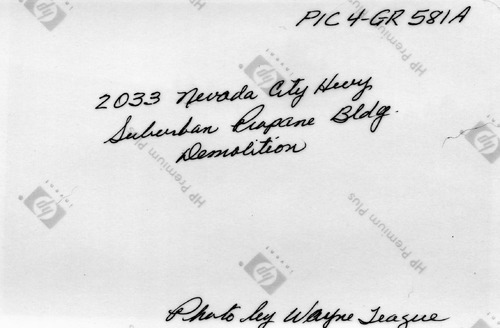 PIC 4-GR 581A
2033 Nevada City Hwy
Suburban Propane Bldg.
Demolition
Photo by Wayne Teague
hp
HP Premium Plus
hp
HP Premium Plus
hp
HP Premium Plus
hp
HP Premium Plus
hp